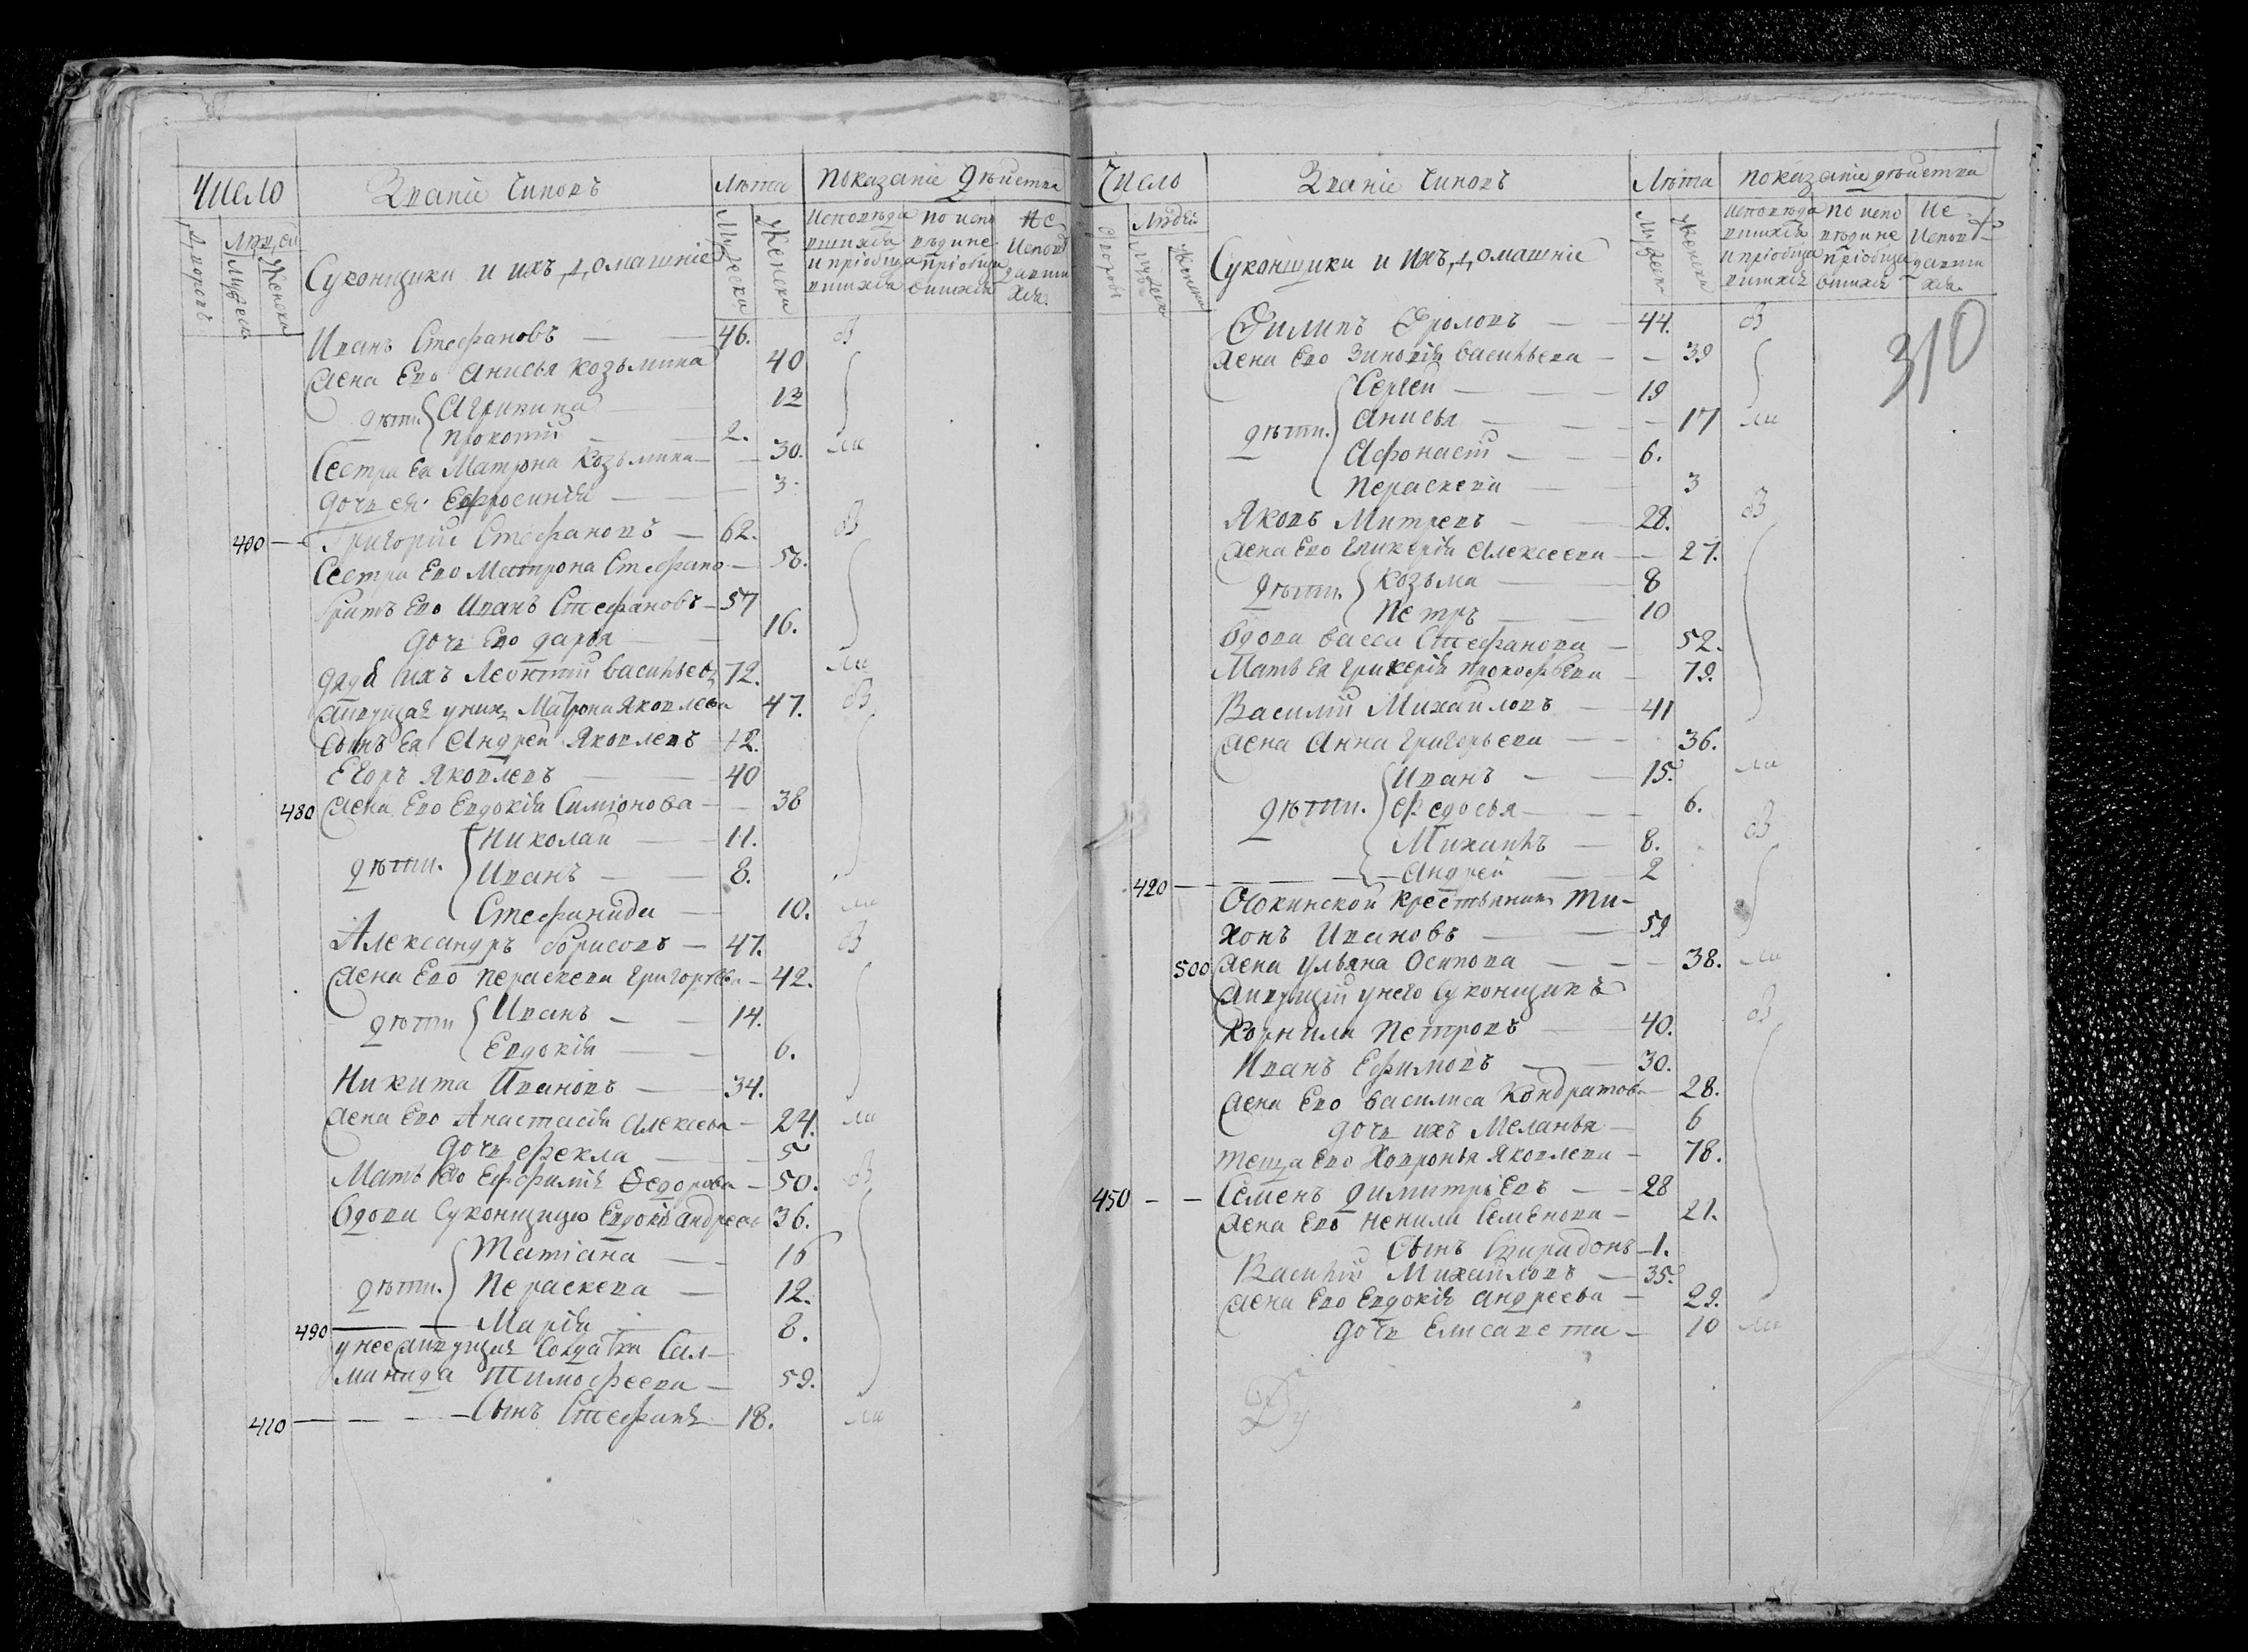 Число Званіе Чиновъ Лѣта Показаніе дѣйства
Дворовъ Людей Мужеска Женска Суконщики и ихъ домашніе Мужеска Женска Исповѣдавшихся и пріобщавшихся по испо вѣди не пріобщившихся Не исповѣдавшихся
Иванъ Стефановъ 46.
Жена Ево Анисья Козьмина 40
дѣти. Агрипина 12
Прокопій 2.
Сестра Ея Матрона Козьмина 30. ли
Дочь ея Ефросинія 3
400 Григорій Стефановъ 62. В
Сестра Ево Матрона Стефано 56.
Братъ Ево Иванъ Стефановъ 57
Дочь Ево Дарья 16.
Дядя ихъ Леонтій Васильевъ 72. ли
Живущая у них Матрона Яковлева 47. В
Сынъ Ея Андрей Яковлевъ 12.
Егоръ Яковлевъ 40
480 Жена Ево Евдокія Симіонова 38
дѣти. Николай 11.
Иванъ 8.
Стефанида 10. ли
Александръ Борисовъ 47. В
Жена Ево Пераскева Григорьев 42.
дѣти Иванъ 14.
Евдокія 6.
Никита Ивановъ 34.
Жена Ево Анастасія Алексева 24. ли
Дочь Фекла 5
Мать Ево Ефимія Федорова 50. В
Вдова Суконщица Евдокія Андреев 36.
Татіана 16
дѣти. Пераскева 12.
490 Марія 8.
у нее живущая Солдатка Сал-
манида Тимофеева 59.
410 Сынъ Стефанъ 18. ли
Число Званіе Чиновъ Лѣта Показаніе дѣйства
Дворовъ Людей Мужеска Женска Суконщики и ихъ домашніе Мужеска Женска Исповѣдавшихся и пріобщавшихся по испо вѣди не пріобщившихся Не исповѣдавшихся
310
Филипъ Фроловъ 44. В
Жена Ево Зиновія Васильева 39
Сергей 19
дѣти. Анисья 17 ли
Афонасій 6.
Пераскева 3
Яковъ Митревъ 28. В
Жена Ево Гликерія Алексеева 27.
дѣти. Козьма 8
Петръ 10
Вдова Васса Стефанова 52.
Мать Ея Гликерія Прокофьева 79.
Василій Михайловъ 41
Жена Анна Григорьева 36.
Иванъ 15. ли
дѣти. Федосья 6.
Михаилъ 8. В
420 Андрей 2
крестьянинъ Ти-
хонъ Ивановъ 59
500 Жена Ульяна Осипова 38. ли
Живущій у него Суконщикъ
Корнила Петровъ 40. В
Иванъ Ефимовъ 30.
Жена Ево Василиса Кондратов 28.
дочь ихъ Меланья 6
теща Ево Ховронья Яковлева 78.
450 Семенъ Димитріевъ 28
Жена Ево Ненила Семенова 21.
Сынъ Спиридонъ 1.
Василій Михайловъ 35.
Жена Ево Евдокія Андреева 29.
Дочь Елисавета 10 ли